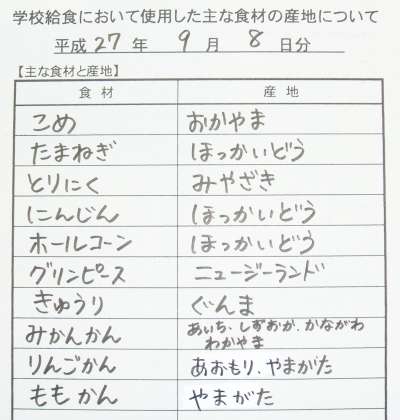 学校給食において使用した主な食材の産地について
平成 27 年 9 月 8 日分
【主な食材と産地】
食材 産地
こめ おかやま
たまねぎ ほっかいどう
とりにく みやざき
にんじん ほっかいどう
ホールコーン ほっかいどう
グリンピース ニュージーランド
きゅうり ぐんま
みかんかん あいち、しずおか、かながわ
わかやま
りんごかん あおもり、やまがた
ももかん やまがた